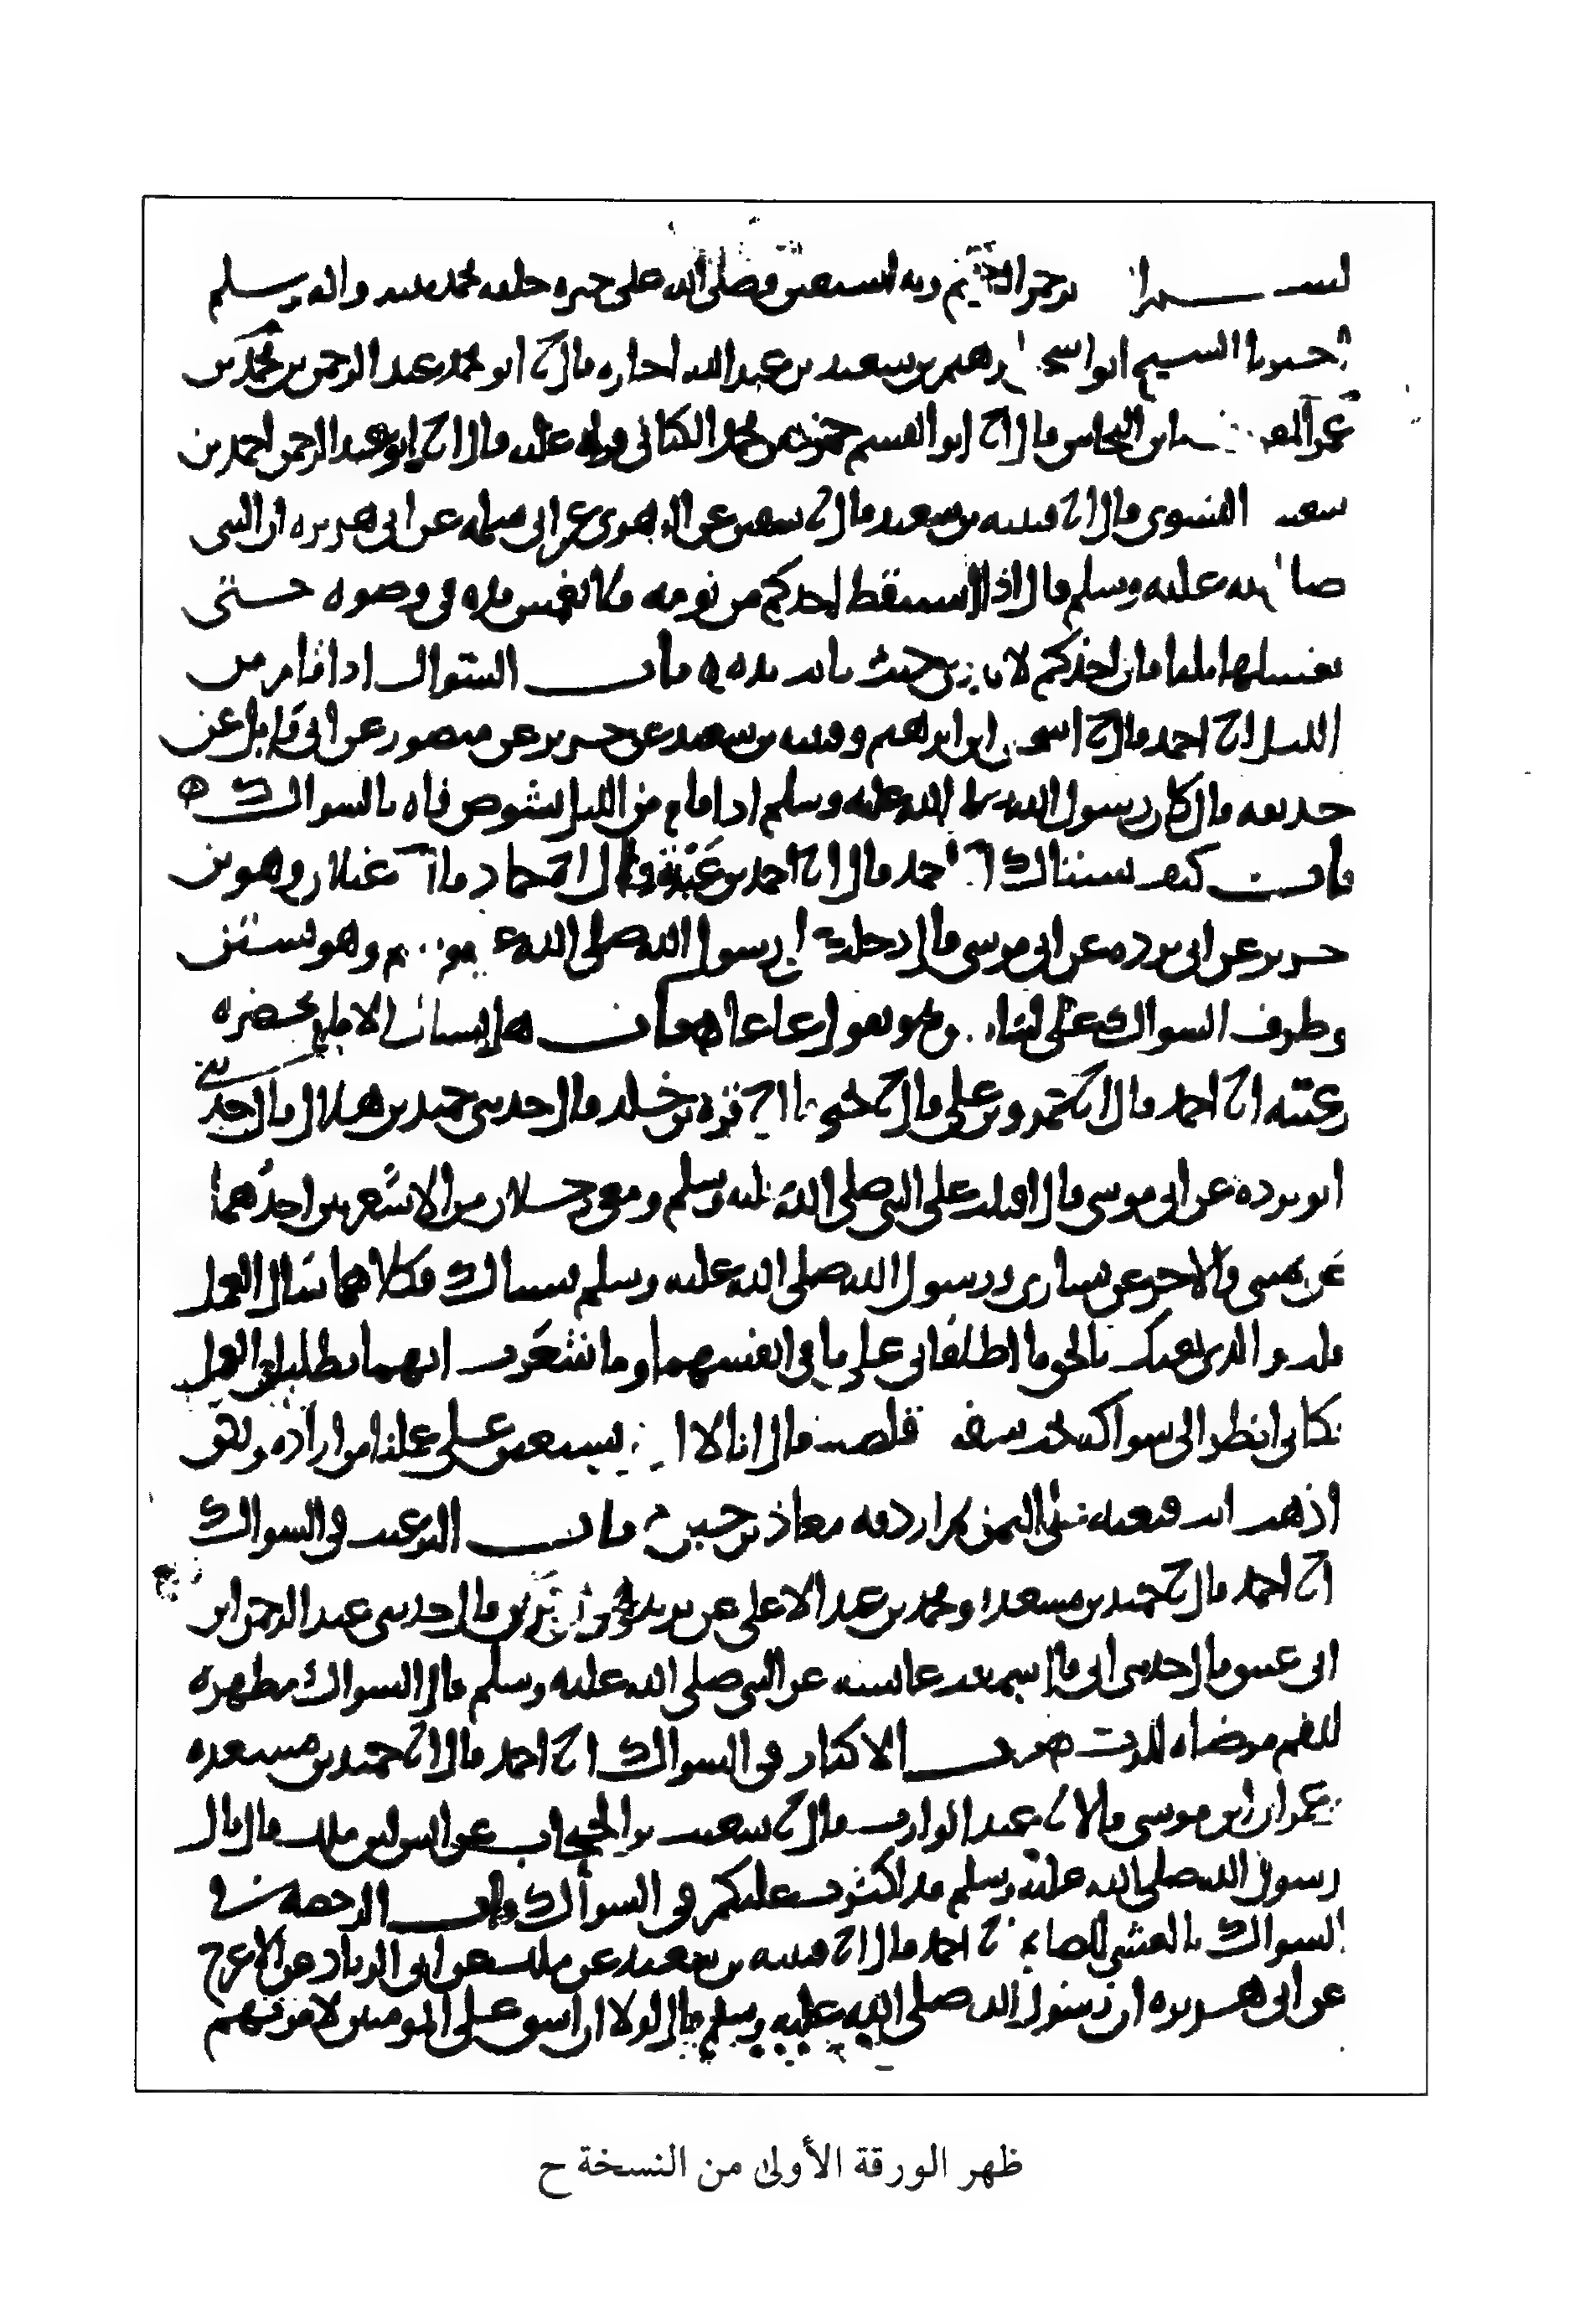 بسم الرحمن الرحيم وبه نستعين وصلى الله على خيره خلقه محمد نبيه واله وسلم
اخبرنا الشيخ ابو اسحق ابرهيم بن سعيد بن عبد الله اجازه قال ابو محمد عبد الرحمن بن محمد بن
عمر ابن النحاس قال ابو القسم حمزه بن محمد الكناني قراه عليه قال ابو عبد الرحمن احمد بن
شعيب النسوي قال قتيبه بن سعيد قال سفين عن الزهري عن ابي سلمه عن ابي هريره ان النبي
صلى الله عليه وسلم قال اذا استيقظ احدكم من نومه فلا يغمس يده في وضوه حتى
يغسلها ثلثا فان احدكم لا يدري حيث باتت يده باب السواك اذا قام من
الليل احمد قال اسحق ابن ابرهيم وقتيبه بن سعيد عن جرير عن منصور عن ابي وايل عن
حذيفه قال كان رسول الله صلى الله عليه وسلم اذا قام من الليل يشوص فاه بالسواك
باب كيف يستاك احمد قال احمد بن عبده قال حماد غيلان وهو بن
جرير عن ابي برده عن ابي موسى قال دخلت رسول الله صلى الله وهو يستن
وطرف السواك على لسانه وهو يقول عا عا باب هل يستاك الامام بحضره
رعيته احمد قال عمرو بن علي قال يحيى قره بن خلد قال حدثني حميد بن هلال قال حدثني
ابو برده عن ابي موسى قال اقبلت على النبي صلى الله عليه وسلم ومعي رجلان من الاشعريين احدهما
عن يميني والاخر عن يساري ورسول الله صلى الله عليه وسلم يستاك فكلاهما سال العمل
قلت والذي بعثك بالحق ما اطلعاني على ما في انفسهما وما شعرت انهما يطلبان العمل
فكاني انظر الى سواكه تحت شفته قلصت فقال انا لا نستعين على عملنا من اراده ولكن
اذهب انت فبعثه على اليمن ثم اردفه معاذ بن جبل باب الترغيب في السواك
احمد قال حميد بن مسعده ومحمد بن عبد الاعلى عن يزيد وهو بن زريع قال حدثني عبد الرحمن ابن
ابي عتيق قال حدثني ابي قال سمعت عايشه عن النبي صلى الله عليه وسلم قال السواك مطهره
للفم مرضاه للرب الاكثار في السواك احمد قال حميد بن مسعده
وعمران ابن موسى قالا عبد الوارث قال سعيد بن الحبحاب عن انس بن ملك قال قال
رسول الله صلى الله عليه وسلم قد اكثرت عليكم في السواك باب الرخصه في
السواك بالعشي للصايم احمد قال قتيبه بن سعيد عن ملك عن ابي الزناد عن الاعرج
عن ابي هريره ان رسول الله صلى الله عليه وسلم قال لولا ان اشق على المومنين لامرتهم
ظهر الورقة الأولى من النسخة ح